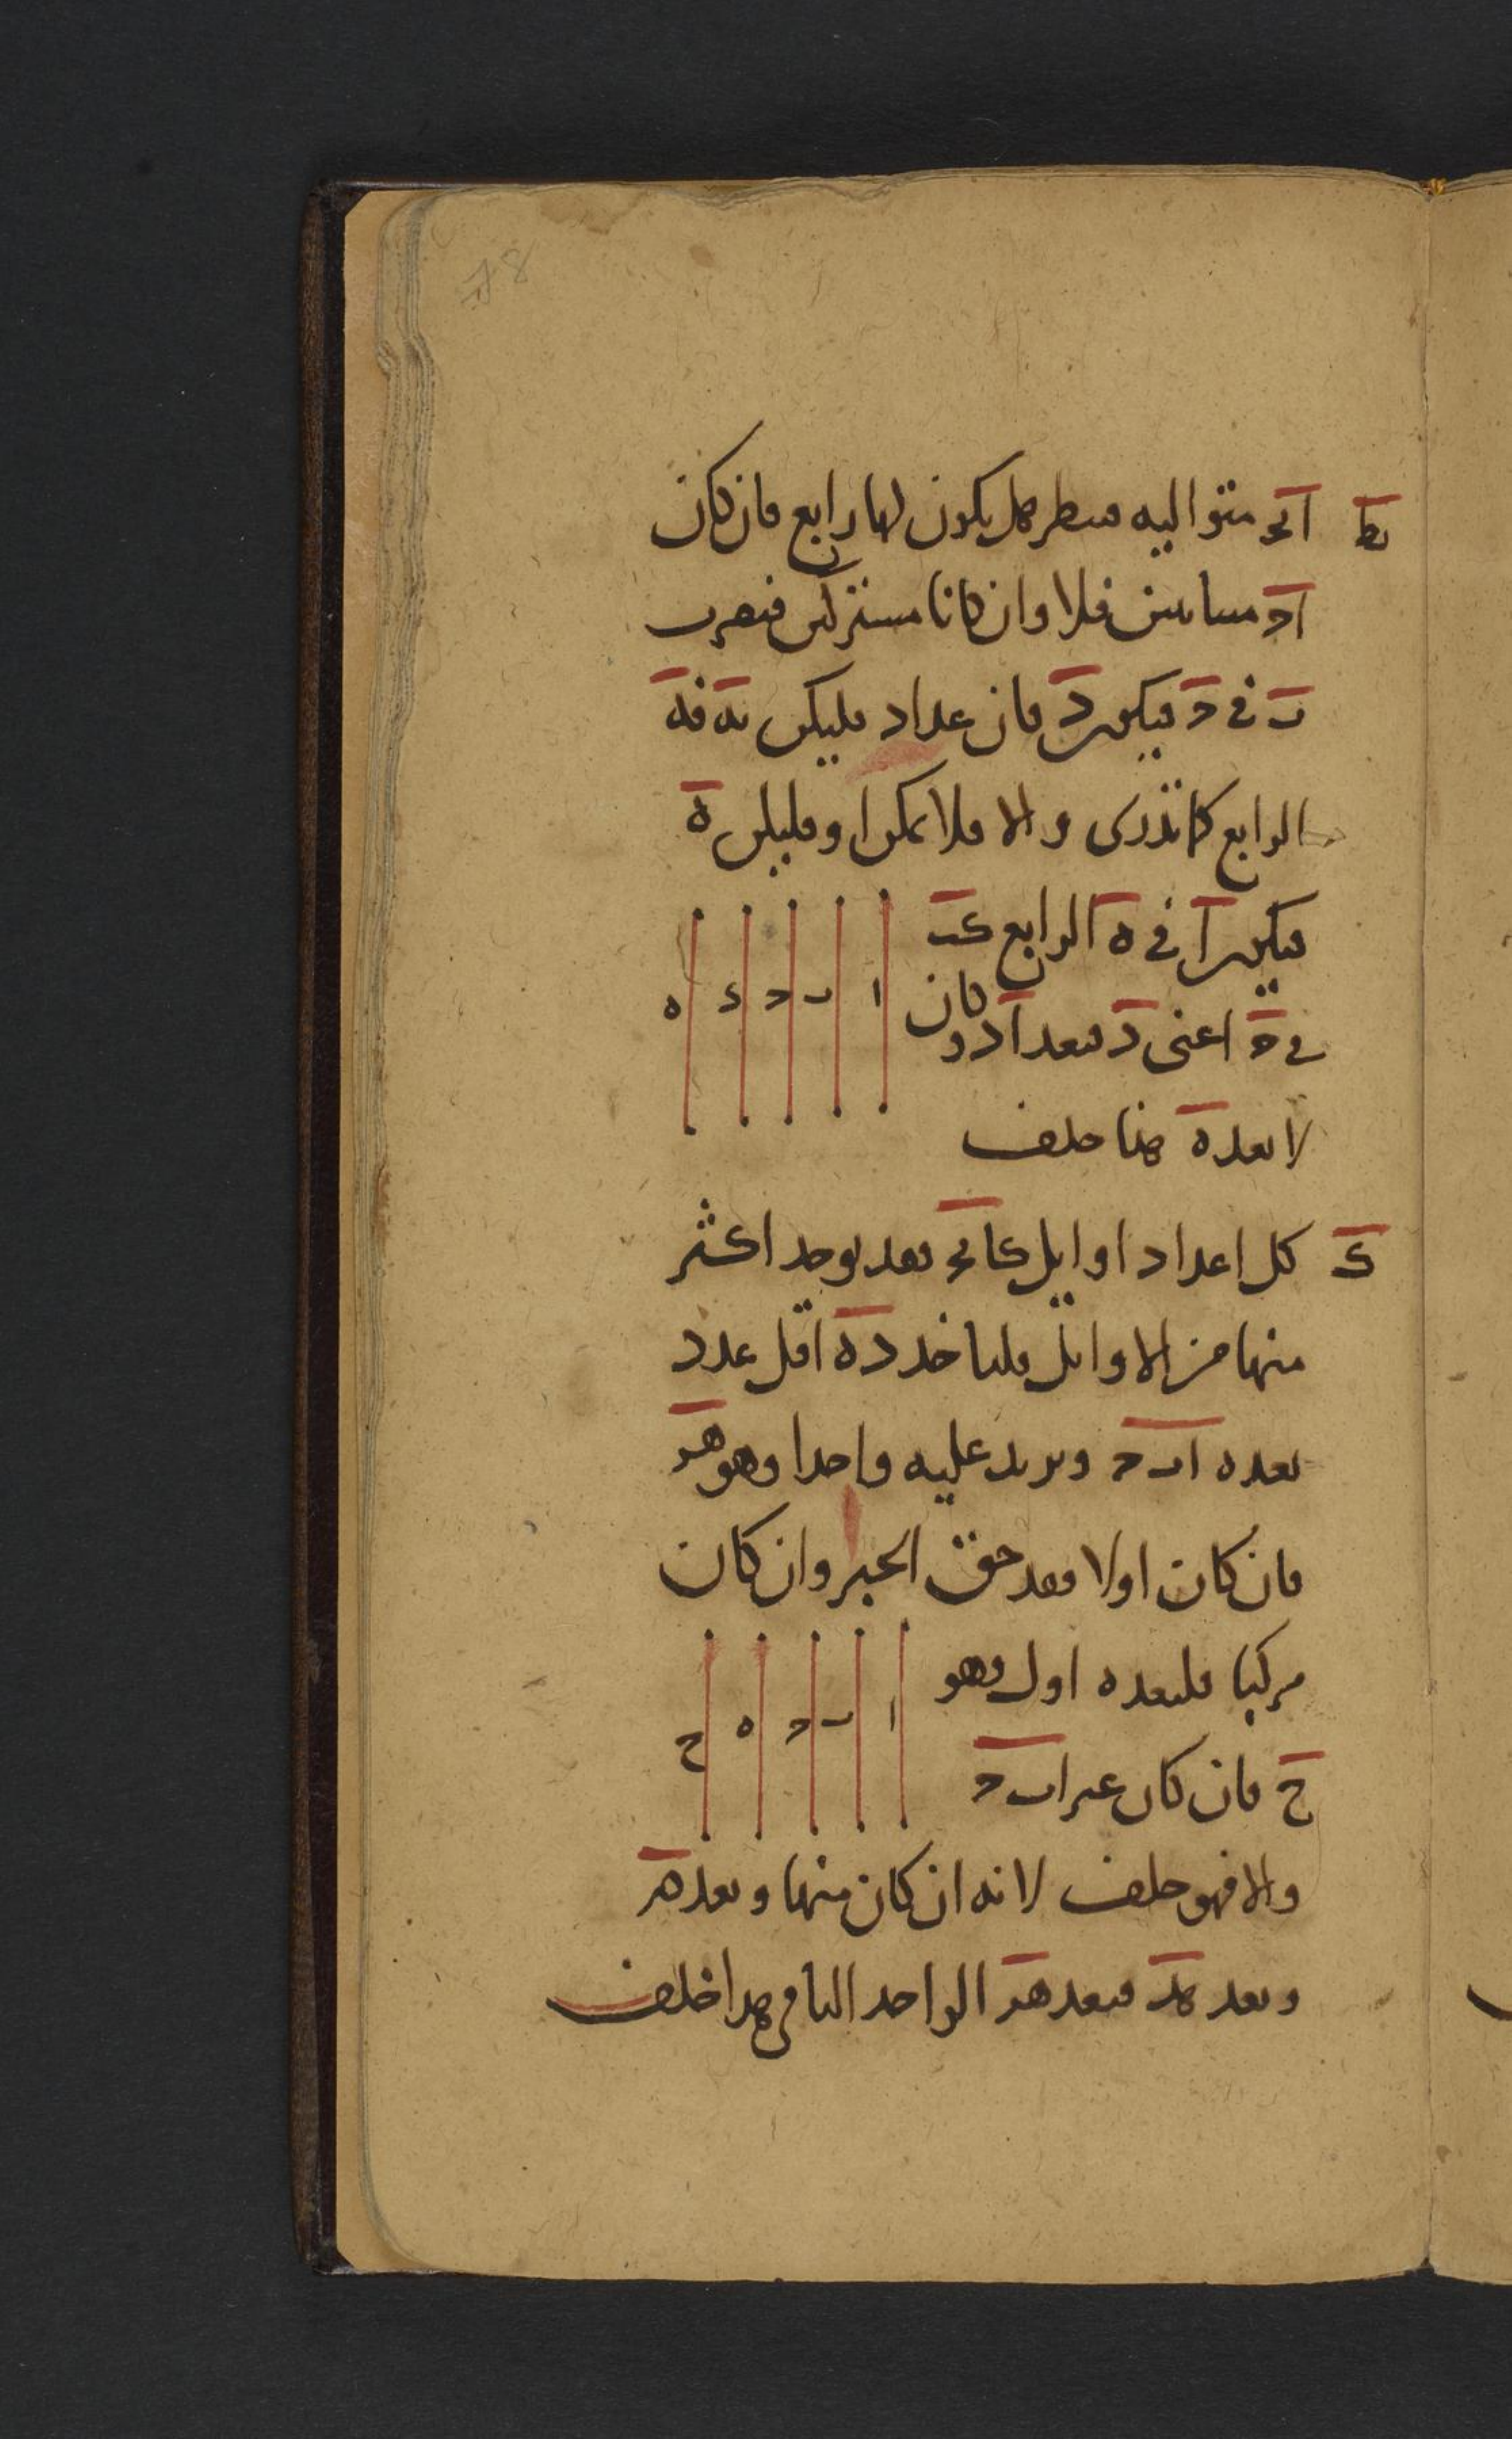 78
يط ابج متوالية فننظر هل يكون لها رابع فان كان
اج متباينين فلا وان كانا مشتركين فنضرب
ب في ج فيكن د فان عد ا د فليكن بة فه
الرابع كما تدرى والا فلا يمكن ا وفليكن ه
فيكن ا في ه الرابع كب
في ج اعنى د فيعد ا د وكان
لا يعده هذا خلف
ا ب ج د ه
ك كل اعداد اوايل كابج فقد يوجد اكثر
منها من الاوايل فلناخد ده اقل عدد
يعده ابج ونزيد عليه واحدا وهو هر
فان كان اولا فقد حق الخبر وان كان
مركبا فليعده اول وهو
ح فان كان غير ابج
ا ب ج ه ح
والا فهو خلف لانه ان كان منها ويعد هر
ويعد هد فيعد هر الواحد الباقي هذا خلف